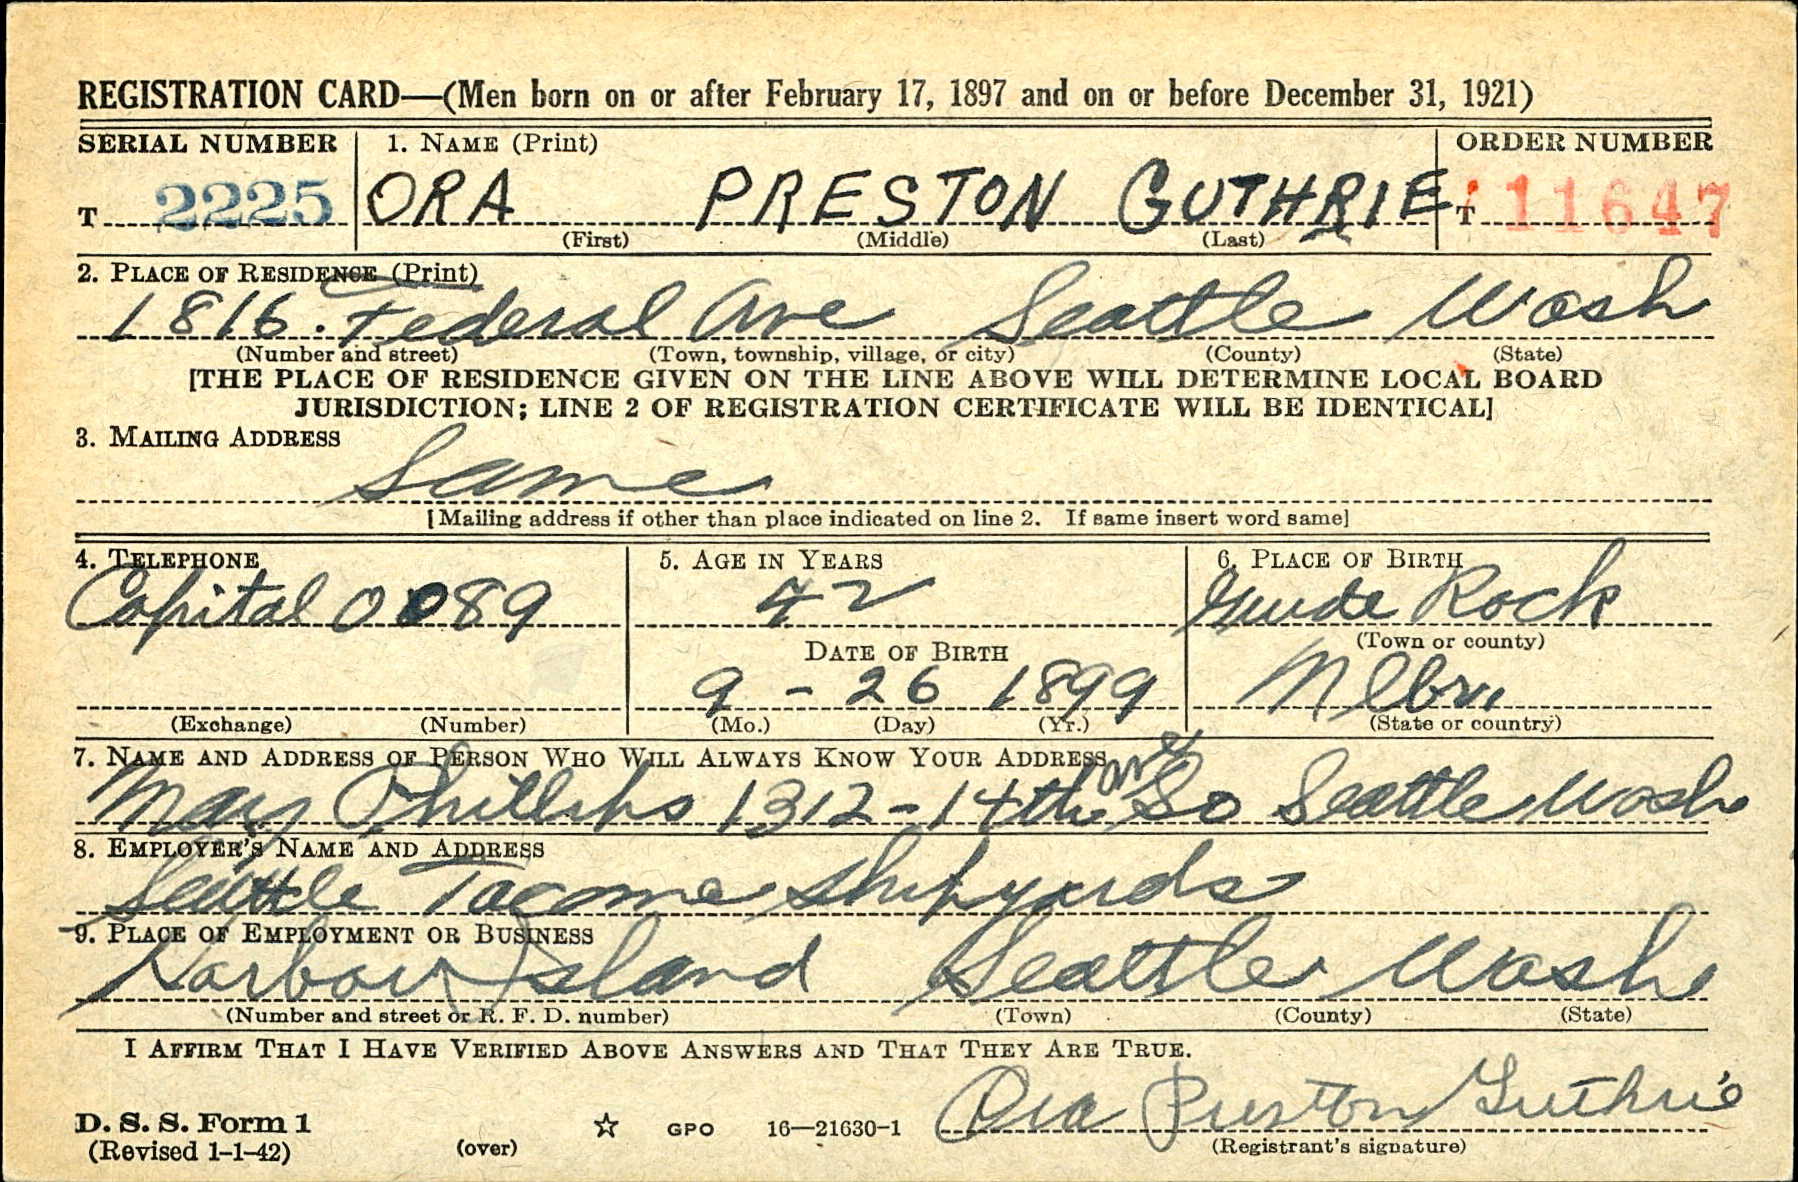 REGISTRATION CARD—(Men born on or after February 17, 1897 and on or before December 31, 1921)
SERIAL NUMBER 1. NAME (Print) ORDER NUMBER
T 2225 ORA PRESTON GUTHRIE T 11647
(First) (Middle) (Last)
2. PLACE OF RESIDENCE (Print)
1816. Federal Ave Seattle Wash
(Number and street) (Town, township, village, or city) (County) (State)
[THE PLACE OF RESIDENCE GIVEN ON THE LINE ABOVE WILL DETERMINE LOCAL BOARD
JURISDICTION; LINE 2 OF REGISTRATION CERTIFICATE WILL BE IDENTICAL]
3. MAILING ADDRESS
Same
[Mailing address if other than place indicated on line 2. If same insert word same]
4. TELEPHONE 5. AGE IN YEARS 6. PLACE OF BIRTH
Capital 0089 42 Rock
(Town or county)
DATE OF BIRTH
9 - 26 1899 Nebr.
(Exchange) (Number) (Mo.) (Day) (Yr.) (State or country)
7. NAME AND ADDRESS OF PERSON WHO WILL ALWAYS KNOW YOUR ADDRESS
May Phillips 1312-14th Ave So Seattle Wash
8. EMPLOYER'S NAME AND ADDRESS
Seattle Tacoma Shipyards
9. PLACE OF EMPLOYMENT OR BUSINESS
Harbor Island Seattle Wash
(Number and street or R. F. D. number) (Town) (County) (State)
I AFFIRM THAT I HAVE VERIFIED ABOVE ANSWERS AND THAT THEY ARE TRUE.
Ora Preston Guthrie
D. S. S. Form 1
(Revised 1-1-42) (over) ☆ GPO 16—21630-1 (Registrant's signature)